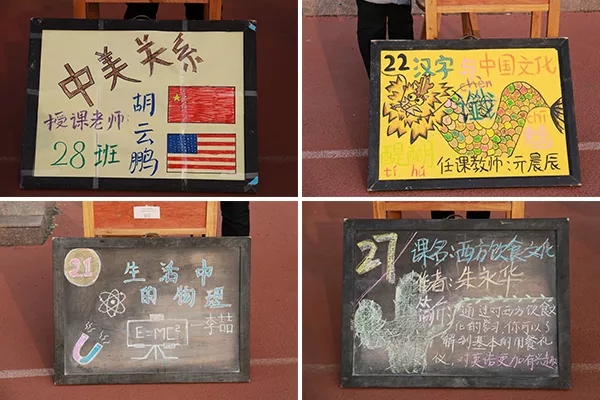 中美关系
授课老师:
胡云鹏
28班
22汉字与中国文化
chèn
chī
醍醐
tí hú
任课教师:亓晨辰
21
生活中
的物理
—李喆
E=MC²
27
课名:西方饮食文化
作者:朱永华
简介:通过对西方饮食文
化的学习,你可以了
解到基本的用餐礼
仪,对英语更加有兴趣